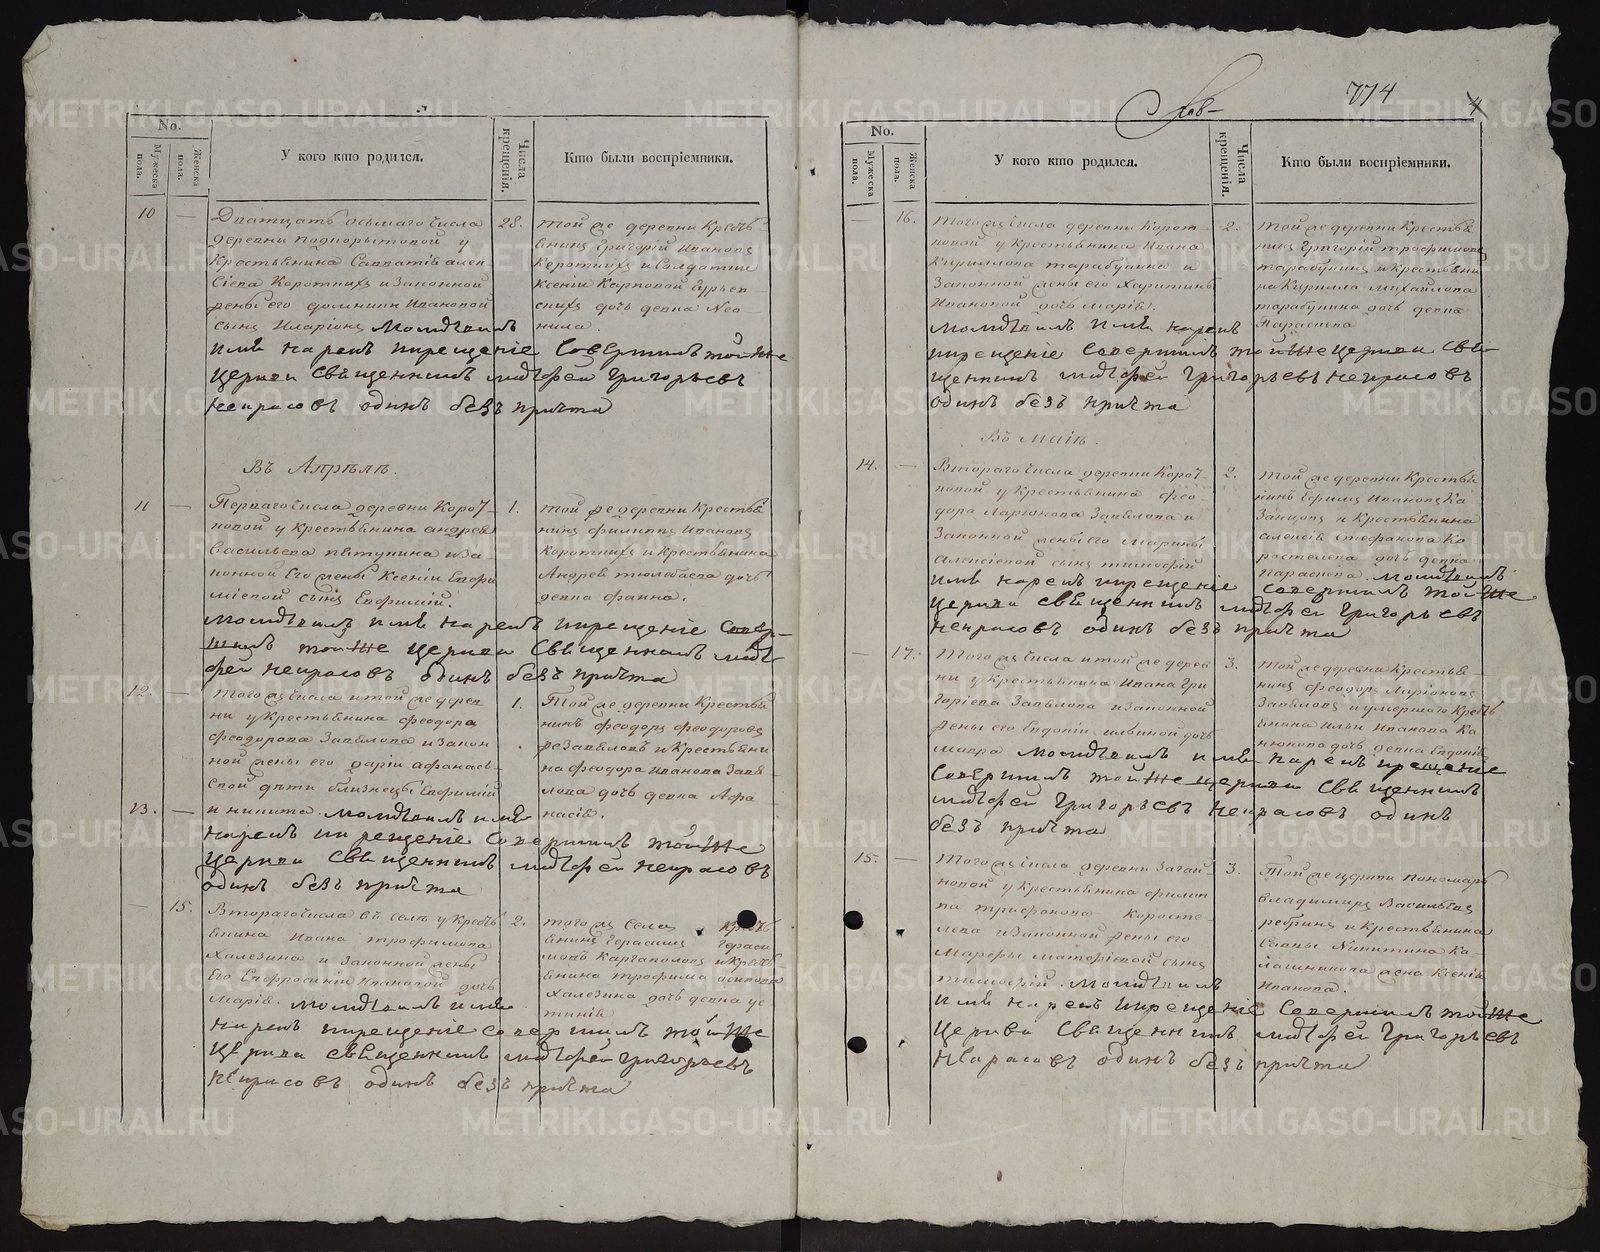 No.
Мужеска пола.
Женска пола.
У кого кто родился.
Числа крещенія.
Кто были воспріемники.
10 —
Дватцать осьмаго числа
деревни
у
Крестьянина Савватія Алек-
сіева Короткихъ и законной
жены его Домники Ивановой
сынъ Иларіонъ молитвилъ
имя нарекъ и крещеніе совершилъ той же
церкви священникъ Матфей Григорьевъ
Некрасовъ одинъ безъ причта
28.
той же деревни Кресть-
янинъ Григорій Ивановъ
Короткихъ и Солдатки
Ксеніи Карповой
дочь девка Нео-
нила.
Въ Апрѣлѣ.
11 —
Перваго числа деревни Корот-
ковой у крестьянина Андрея
Васильева Пятунина и за-
конной его жены Ксеніи Евфи-
міевой сынъ Евфимій.
молитвилъ имя нарекъ и крещеніе совер-
шилъ той же церкви священникъ Мат-
фей Некрасовъ одинъ безъ причта
1.
той же деревни крестья-
нинъ Филиппъ Ивановъ
Короткихъ и крестьянина
Андрея
дочь
девка Фаина.
12. —
Того жъ числа и той же дерев-
ни у крестьянина Феодора
Феодорова Завьялова и закон-
ной жены его Даріи Афанась-
евой дѣти близнецы Евфимій
13. —
и Никита молитвилъ имя
нарекъ и крещеніе совершилъ той же
церкви священникъ Матфей Некрасовъ
одинъ безъ причта
1.
Той же деревни крестья-
нинъ Феодоръ Феодоровъ
же Завьяловъ и крестьяни-
на Феодора Иванова Завья-
лова дочь девка Афа-
насія.
— 15.
Втораго числа въ селѣ у кресть-
янина Ивана Трофимова
Халезина и законной жены
его Евфросиніи Ивановой дочь
Марія. молитвилъ имя
нарекъ и крещеніе совершилъ той же
церкви священникъ Матфей Григорьевъ
Некрасовъ одинъ безъ причта
2.
того жъ села кресть-
янинъ Герасимъ Гераси-
мовъ Каргаполовъ и кресть-
янина Трофима Осипова
Халезина дочь девка Ус-
тинія
774
4
No.
Мужеска пола.
Женска пола.
У кого кто родился.
Числа крещенія.
Кто были воспріемники.
— 16.
Того жъ числа деревни Корот-
ковой у крестьянина Ивана
Кириллова Тарабукина и
законной жены его Харитины
Ивановой дочь Марія.
молитвилъ имя нарекъ
и крещеніе совершилъ той же церкви свя-
щенникъ Матфей Григорьевъ Некрасовъ
одинъ безъ причта
2.
той же деревни крестья-
нинъ Григорій Трофимовъ
Тарабукинъ и крестьяни-
на Кирила Михайлова
Тарабукина дочь девка
Параскева
Въ Маіѣ.
14. —
Втораго числа деревни Корот-
ковой у крестьянина Фео-
дора Ларіонова Завьялова и
законной жены его Марины
Алексіевой сынъ Тимофій
имя нарекъ и крещеніе
церкви священникъ Матфей Григорьевъ
Некрасовъ одинъ безъ причта
2.
той же деревни крестья-
нинъ
Ивановъ Ка-
занцовъ и крестьянина
Алексія Стефанова Ко-
ростелева дочь девка
Параскева. молитвилъ
совершилъ той же
— 17.
Того жъ числа и той же дерев-
ни у крестьянина Ивана Гри-
горіева Завьялова и законной
жены его Евдокіи
дочь
Мавра молитвилъ имя нарекъ крещеніе
совершилъ той же церкви священникъ
Матфей Григорьевъ Некрасовъ одинъ
безъ причта
3.
той же деревни крестья-
нинъ Феодоръ Ларіоновъ
Завьяловъ и умершаго кресть-
янина Ильи Иванова
дочь девка Евдокія
15. —
Того жъ числа деревни
у крестьянина Филип-
па Трифонова Коросте-
лева и законной жены его
Марфы Матфіевой сынъ
Тимофій. молитвилъ
имя нарекъ и крещеніе совершилъ той же
церкви священникъ Матфей Григорьевъ
Некрасовъ одинъ безъ причта
3.
Той же церкви пономарь
Владимиръ Васильевъ
и крестьянина
Никитина Ка-
лашникова жена Ксенія
Иванова.
METRIKI.GASO-URAL.RU